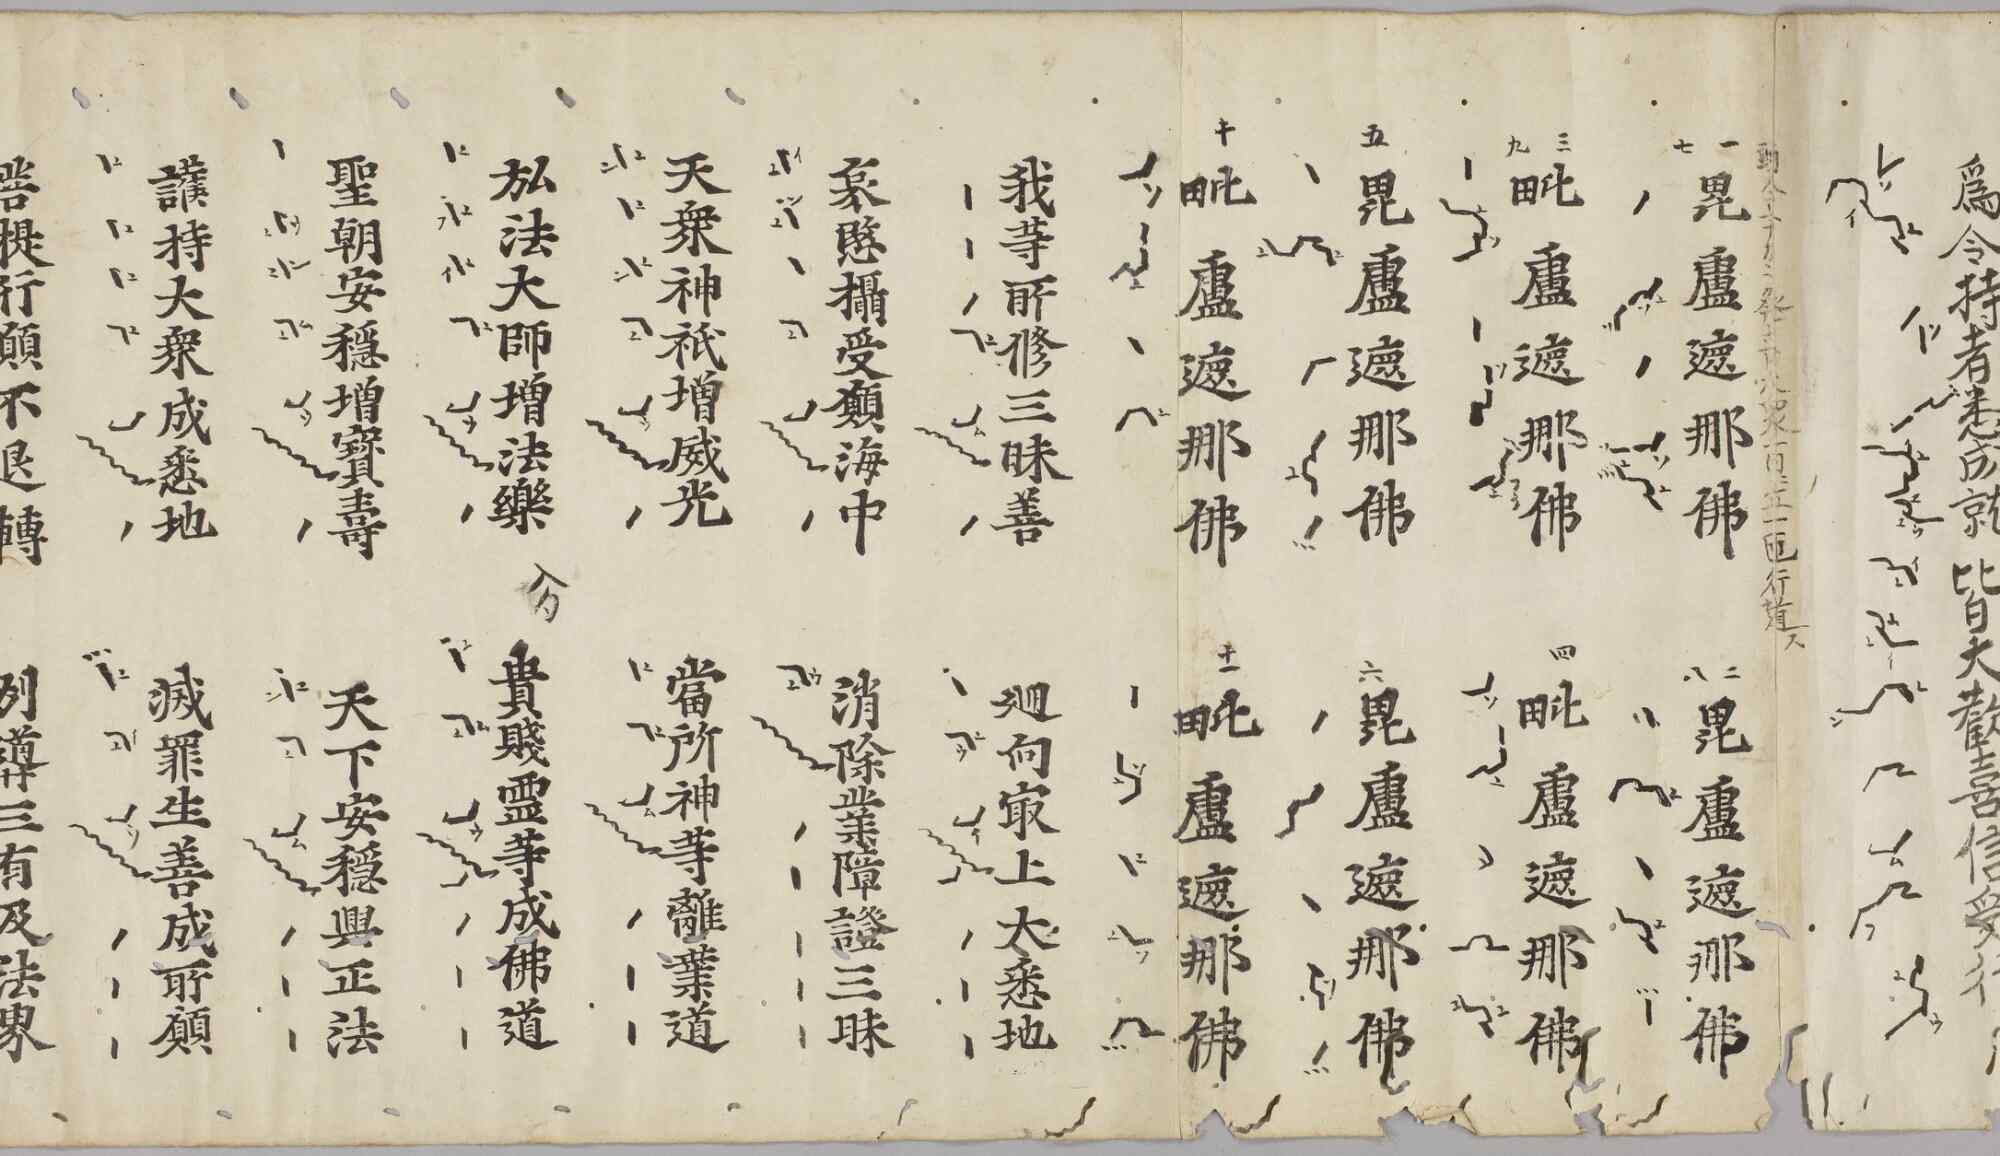 爲令持者悉成就 皆大歡喜信受行
一 七 毘盧遮那佛 二 八 毘盧遮那佛
三 九 毗盧遮那佛 四 毗盧遮那佛
五 毘盧遮那佛 六 毘盧遮那佛
十 毗盧遮那佛 十一 毗盧遮那佛
我等所修三昧善 廻向㝡上大悉地
哀愍攝受願海中 消除業障證三昧
天衆神祇增威光 當所神等離業道
弘法大師增法樂 貴賤靈等成佛道
聖朝安穩增寶壽 天下安穩興正法
護持大衆成悉地 滅罪生善成所願
菩提行願不退轉 引導三有及法界